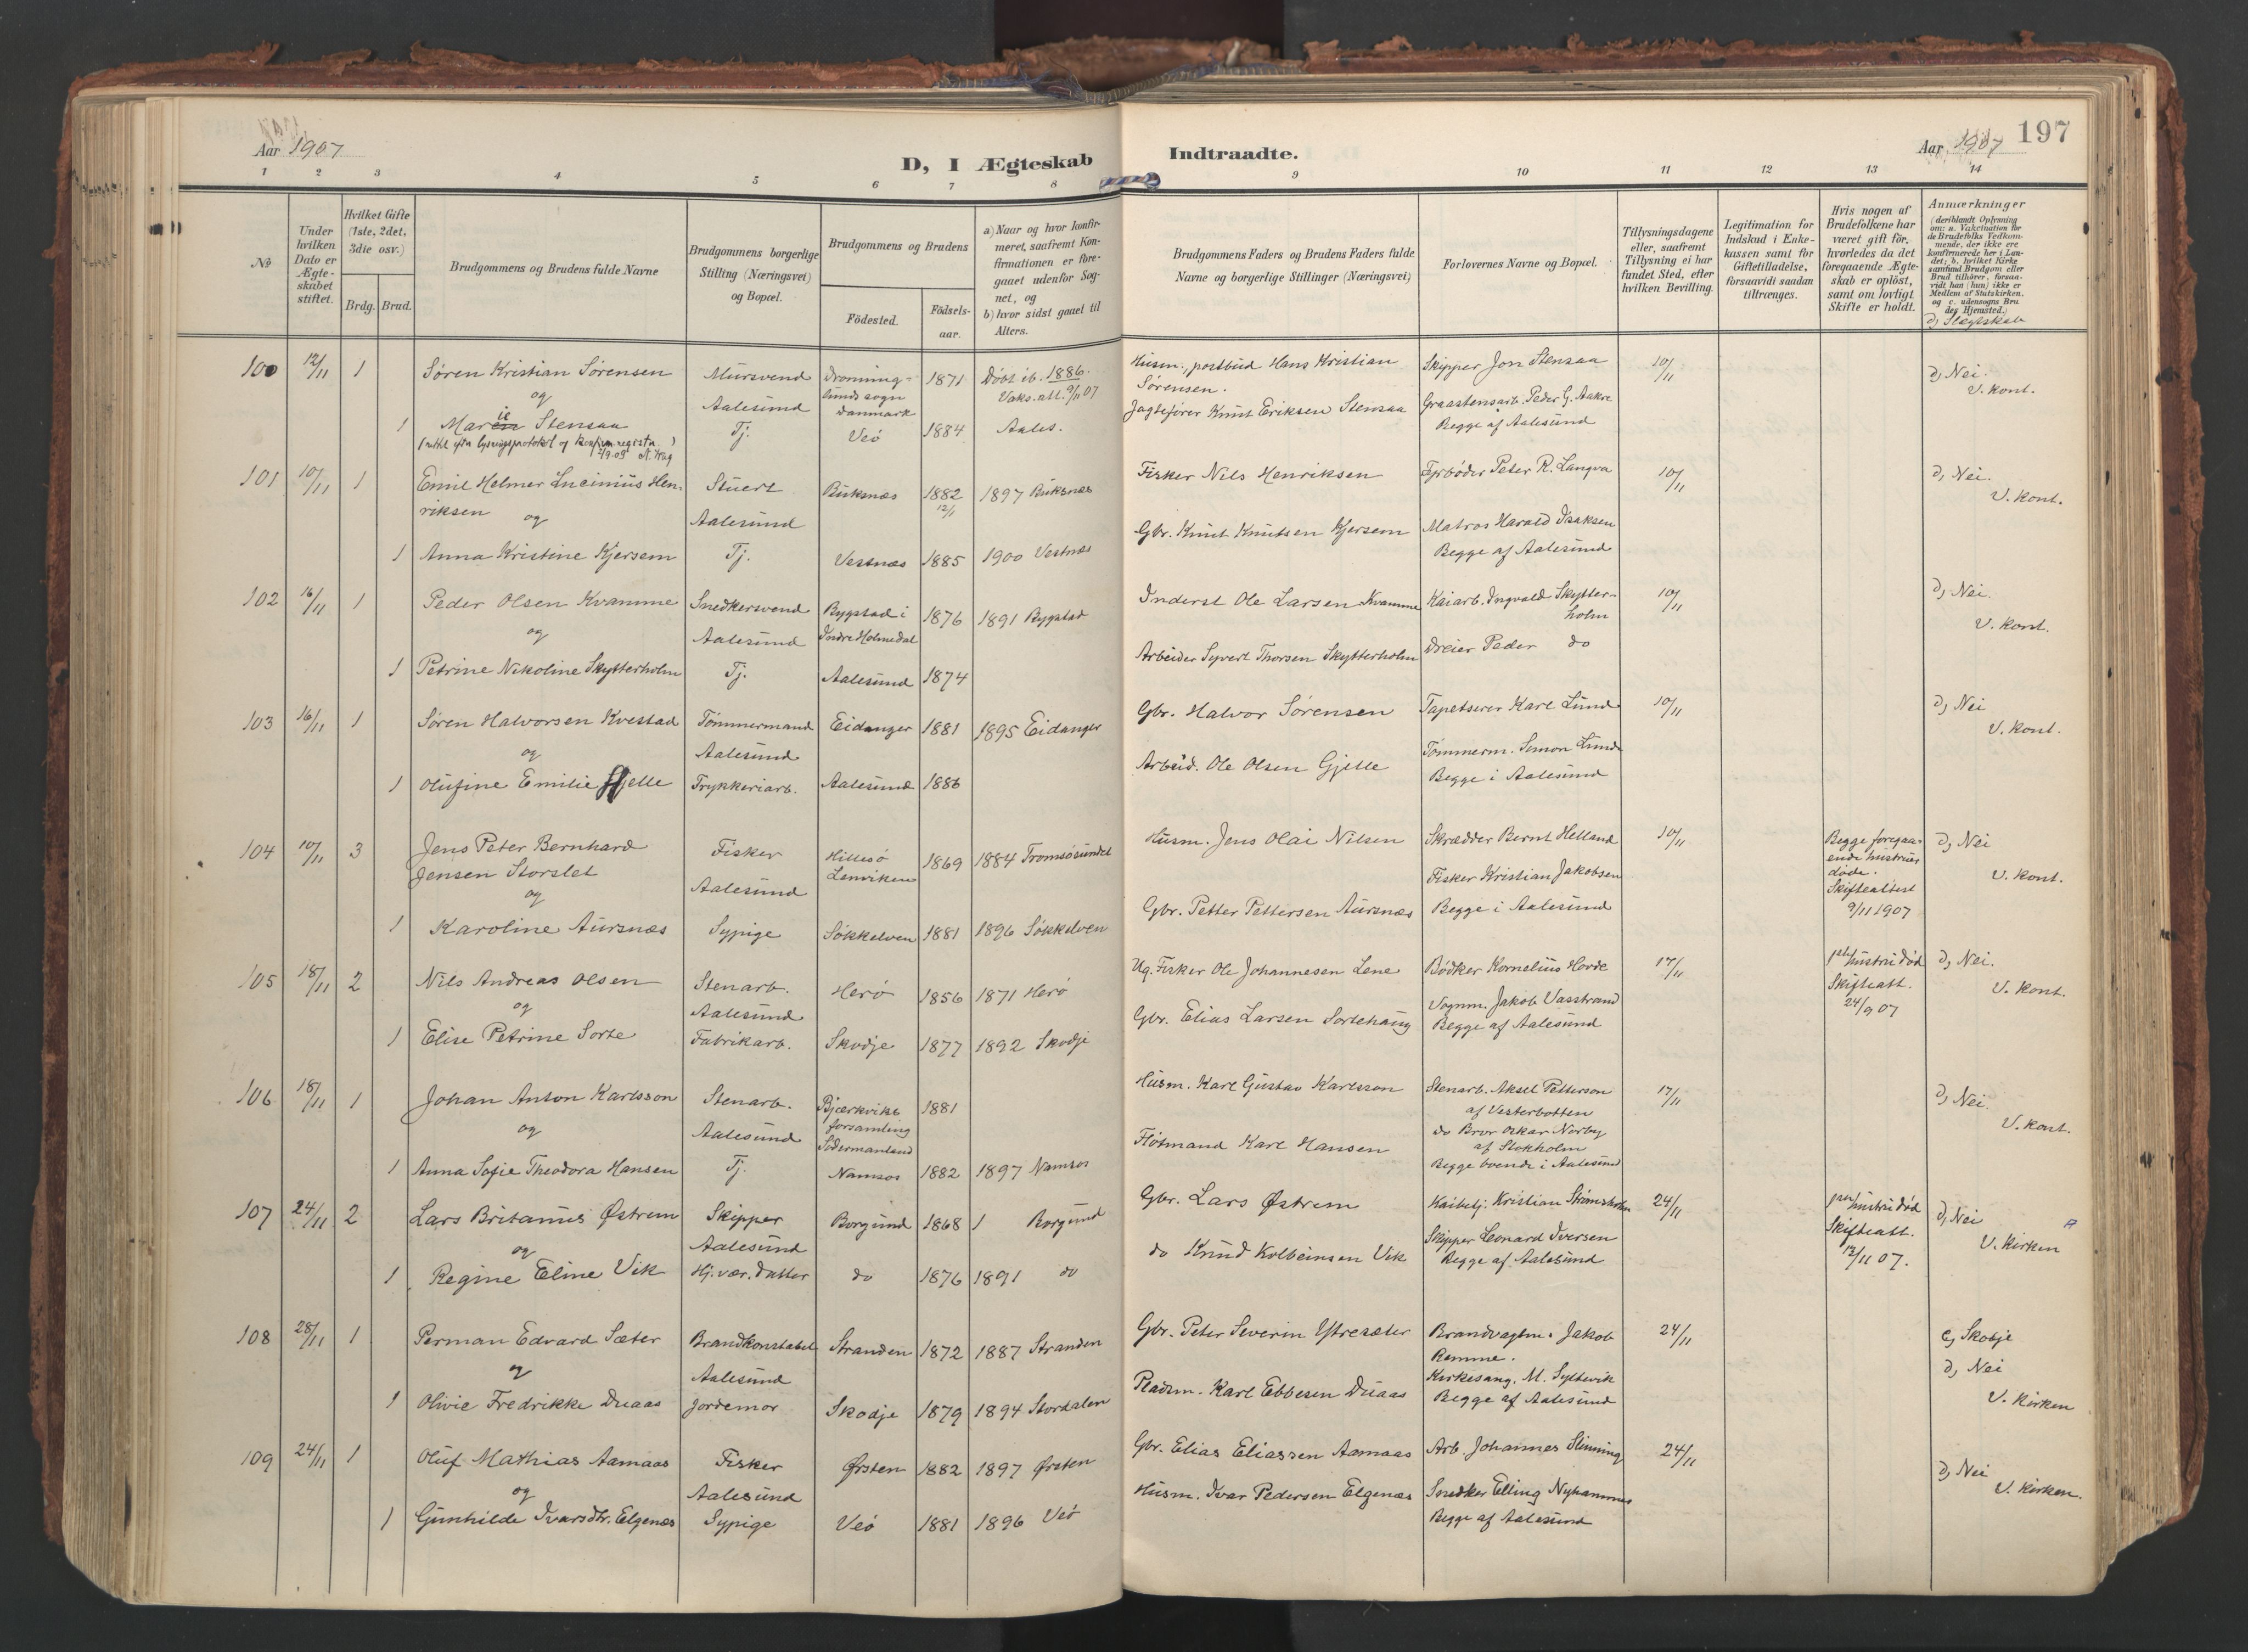 Aar 1907
D, I Ægteskab
Indtraadte.
Aar 1907
197
1 2 3 4 5 6 7 8 9 10 11 12 13 14
No
Under hvilken Dato er Ægte-skabet stiftet.
Hvilket Gifte (1ste, 2det, 3die osv.)
Brdg. Brud.
Brudgommens og Brudens fulde Navne
Brudgommens borgerlige Stilling (Næringsvei) og Bopæl.
Brudgommens og Brudens
Födested.
Födsels-aar.
a) Naar og hvor konfir-meret, saafremt Kon-firmationen er fore-gaaet udenfor Sog-net, og
b) hvor sidst gaaet til Alters.
Brudgommens Faders og Brudens Faders fulde Navne og borgerlige Stillinger (Næringsvei)
Forlovernes Navne og Bopæl.
Tillysningsdagene eller, saafremt Tillysning ei har fundet Sted, efter hvilken Bevilling.
Legitimation for Indskud i Enke-kassen samt for Giftetilladelse, forsaavidi saadan tiltrænges.
Hvis nogen af Brudefolkene har været gift för, hvorledes da det foregaaende Ægte-skab er oplöst, samt om lovligt Skifte er holdt.
Anmærkninger
(deriblandt Oplysning om: a. Vakcination for de Brudefolks Vedkom-mende, der ikke ere konfirmerede her i Lan-det; b. hvilket Kirke samfund Brudgom eller Brud tilhörer, forsaa-vidt han (hun) ikke er Medlem af Statskirken, og c. udensogns Bru des Hjemsted.)
d, Slegtskab
100 12/11 1 Søren Kristian Sørensen Mursvend Dronning- 1871 Døbt ib. 1886. Husm., postbud Hans Kristian Skipper Jon Stensaa 10/11 d, Nei.
og Aalesund lunds sogn Danmark Vaks.att. 9/11 07 Sørensen. Graastensarb. Peder G. Aakre V. kont.
1 Marie Stensaa Tj. Veö 1884 Aales. Jagtefører Knut Eriksen Stensaa Begge af Aalesund
(rettet efter lysningsprotokol og konfirm. register
101 10/11 1 Emil Helmer Lucinius Hen- Stuert Buksnæs 1882 1897 Buksnæs Fisker Nils Henriksen Fyrbøder Peter R. Langva 10/11 d, Nei.
riksen og Aalesund 12/1 Matros Harald Isaksen V. kont.
1 Anna Kristine Kjersem Tj. Vestnæs 1885 1900 Vestnæs Gbr. Knut Knutsen Kjersem Begge af Aalesund
102 16/11 1 Peder Olsen Kvamme Snedkersvend Bygstad i 1876 1891 Bygstad Inderst Ole Larsen Kvamme Kaiarb. Ingvald Skytter- 10/11 d, Nei.
og Aalesund Indre Holmedal holm V. kont.
1 Petrine Nikoline Skytterholm Tj. Aalesund 1874 Arbeider Syvert Thorsen Skytterholm Dreier Peder do
103 16/11 1 Søren Halvorsen Kvestad Tömmermand Eidanger 1881 1895 Eidanger Gbr. Halvor Sørensen Tapetserer Karl Lund 10/11 d, Nei
og Aalesund Tömmerm. Simon Lunde V. kont.
1 Olufine Emilie Gjelle Trykkeriarb. Aalesund 1886 Arbeid. Ole Olsen Gjelle Begge i Aalesund
104 10/11 3 Jens Peter Bernhard Fisker Hillesö 1869 1884 Tromsösundet Husm. Jens Olai Nilsen Skrædder Bernt Helland 10/11 Begge foregaa- d, Nei
Jensen Storslet Aalesund Lenviken Fisker Kristian Jakobsen ende hustruer døde. V. kont.
og Skifteattest
1 Karoline Aursnæs Sypige Søkkelven 1881 1896 Søkkelven Gbr. Petter Pettersen Aursnæs Begge i Aalesund 9/11 1907
105 18/11 2 Nils Andreas Olsen Stenarb. Herö 1856 1871 Herö Ug. Fisker Ole Johannesen Lene Bødker Kornelius Hovde 17/11 hustru død d, Nei.
og Aalesund Vognm. Jakob Vasstrand Skifteatt. V. kont.
1 Elise Petrine Sorte Fabrikarb. Skodje 1877 1892 Skodje Gbr. Elias Larsen Sortehaug Begge af Aalesund 24/9 07
106 18/11 1 Johan Anton Karlsson Stenarb. Bjærkviks 1881 Husm. Karl Gustav Karlsson Stenarb. Aksel Petterson 17/11 d, Nei.
og Aalesund forsamling Södermanland af Vesterbotten V. kont.
do Bror Oskar Norby af Stokholm
1 Anna Sofie Theodora Hansen Tj. Namsos 1882 1897 Namsos Fløtmand Karl Hansen Begge boende i Aalesund
107 24/11 2 Lars Britanius Østrem Skipper Borgund 1868 1 Borgund Gbr. Lars Østrem Kaibetj. Kristian Strømsholm 24/11 hustru død d, Nei
og Aalesund Skipper Leonard Iversen Skifteatt. V. Kirken
1 Regine Eline Vik Hj.vær. datter do 1876 1891 do do Knud Kolbeinsen Vik Begge af Aalesund 12/11 07.
108 28/11 1 Perman Edvard Sæter Brandkonstabel Stranden 1872 1887 Stranden Gbr. Peter Severin Ytresæter Brandvagtm. Jakob 24/11 c, Skodje
og Aalesund Remme. d, Nei
Kirkesang. M. Syltevik
1 Olivie Fredrikke Duaas Jordemor Skodje 1879 1894 Stordalen Pladsm. Karl Ebbesen Duaas Begge af Aalesund V. Kirken
109 24/11 1 Oluf Mathias Aamaas Fisker Ørsten 1882 1897 Ørsten Gbr. Elias Eliassen Aamaas Arb. Johannes Slinning 24/11 d, Nei
og Aalesund Snedker Elling Nyhammer V. Kirken.
1 Gunhilde Ivarsdtr. Elgenæs Sypige Veö 1881 1896 Veö Husm. Ivar Pedersen Elgenæs Begge af Aalesund